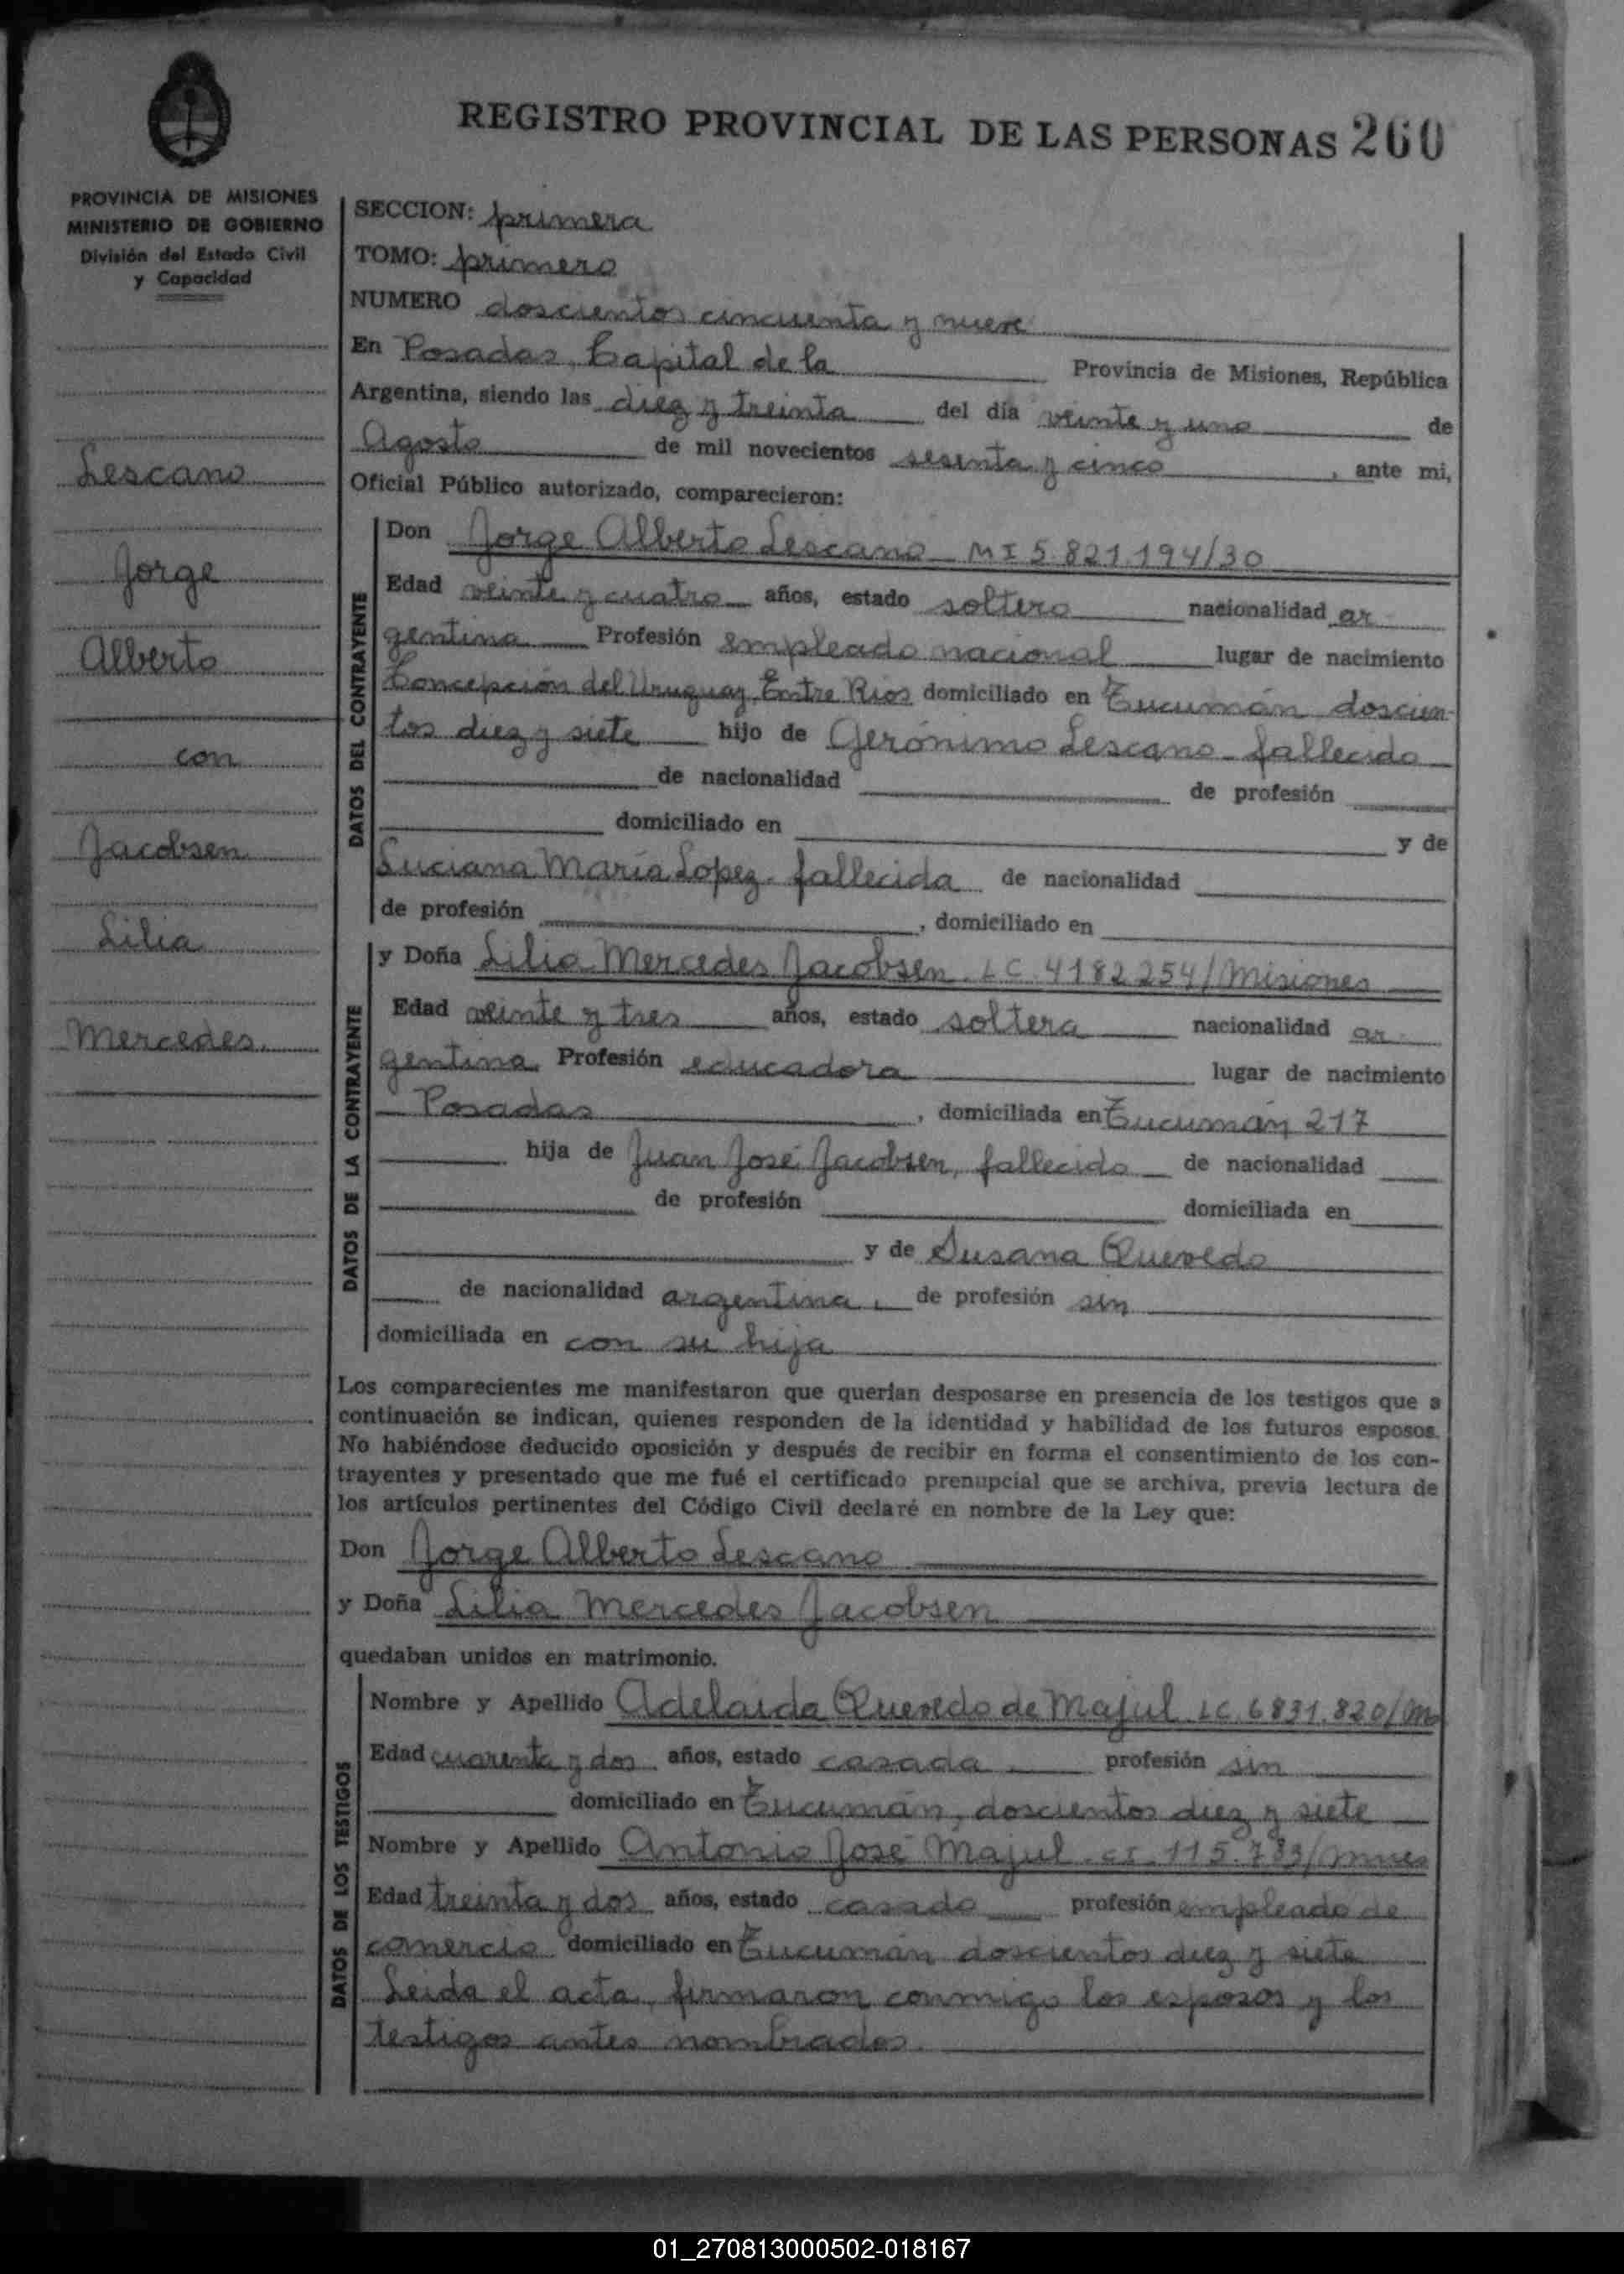 REGISTRO PROVINCIAL DE LAS PERSONAS 260
PROVINCIA DE MISIONES
MINISTERIO DE GOBIERNO
División del Estado Civil
y Capacidad
Lescano
Jorge
Alberto
con
Jacobsen
Lilia
Mercedes
SECCION: primera
TOMO: primero
NUMERO doscientos cincuenta y nueve
En Posadas, Capital de la Provincia de Misiones, República
Argentina, siendo las diez y treinta del día veinte y uno de
Agosto de mil novecientos sesenta y cinco, ante mi,
Oficial Público autorizado, comparecieron:
DATOS DEL CONTRAYENTE
Don Jorge Alberto Lescano MI 5.821.194/30
Edad veinte y cuatro años, estado soltero nacionalidad ar
gentina Profesión empleado nacional lugar de nacimiento
Concepción del Uruguay, Entre Rios domiciliado en Tucumán doscien-
tos diez y siete hijo de Gerónimo Lescano fallecido
de nacionalidad de profesión
domiciliado en y de
Luciana María Lopez. fallecida de nacionalidad
de profesión , domiciliado en
DATOS DE LA CONTRAYENTE
y Doña Lilia Mercedes Jacobsen. LC. 4182254/Misiones
Edad veinte y tres años, estado soltera nacionalidad ar
gentina. Profesión educadora lugar de nacimiento
Posadas , domiciliada en Tucumán 217
hija de Juan José Jacobsen, fallecido de nacionalidad
de profesión domiciliada en
y de Susana Quevedo
de nacionalidad argentina, de profesión sin
domiciliada en con su hija
Los comparecientes me manifestaron que querían desposarse en presencia de los testigos que a
continuación se indican, quienes responden de la identidad y habilidad de los futuros esposos.
No habiéndose deducido oposición y después de recibir en forma el consentimiento de los con-
trayentes y presentado que me fué el certificado prenupcial que se archiva, previa lectura de
los artículos pertinentes del Código Civil declaré en nombre de la Ley que:
Don Jorge Alberto Lescano
y Doña Lilia Mercedes Jacobsen
quedaban unidos en matrimonio.
DATOS DE LOS TESTIGOS
Nombre y Apellido Adelaida Quevedo de Majul LC. 6831.820/
Edad cuarenta y dos años, estado casada profesión sin
domiciliado en Tucumán, doscientos diez y siete
Nombre y Apellido Antonio José Majul. CI. 115.783/
Edad treinta y dos años, estado casado profesión empleado de
comercio domiciliado en Tucumán doscientos diez y siete
Leida el acta, firmaron conmigo los esposos y los
testigos antes nombrados.
01_270813000502-018167